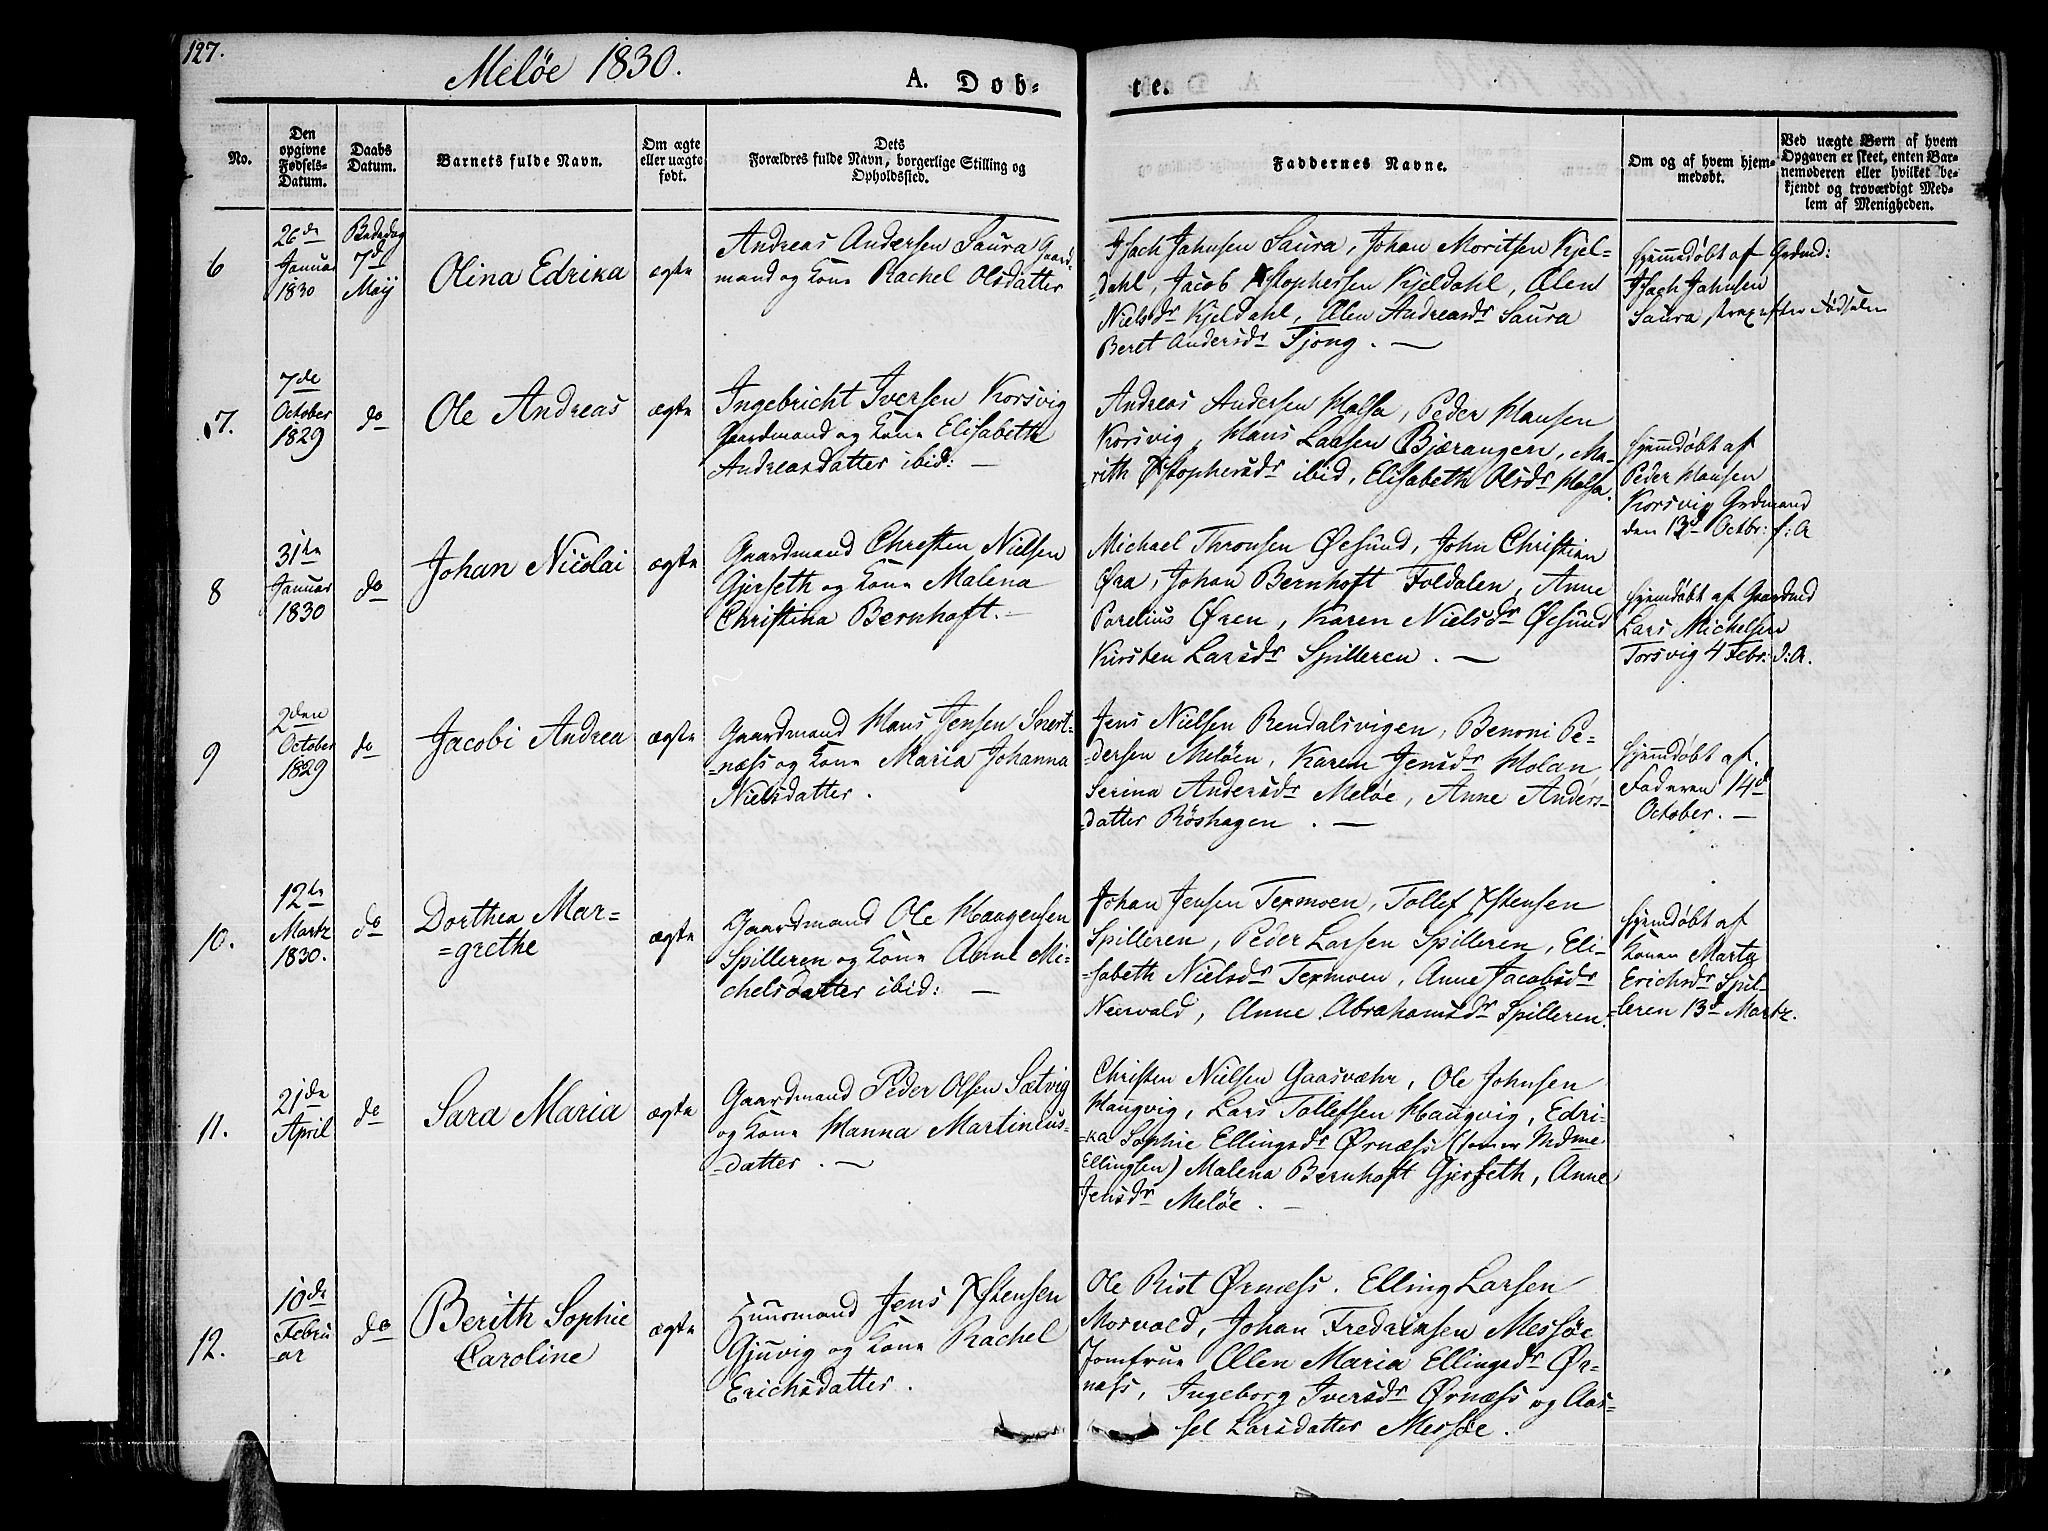 127.
Meløe 1830.
A. Døb-
te.
No.
Den
opgivne
Fødsels-
Datum.
Daabs
Datum.
Barnets fulde Navn.
Om ægte
eller uægte
født.
Dets
Forældres fulde Navn, borgerlige Stilling og
Opholdssted.
Faddernes Navne.
Om og af hvem hjem-
medøbt.
Ved uægte Børn af hvem
Opgaven er skeet, enten Bar-
nemoderen eller hvilket be-
kjendt og troværdigt Med-
lem af Menigheden.
6
26de
Januar
1830
Bededag
7d
Maij
Olina Edrika
ægte
Andreas Andersen Saura Gaard-
mand og Kone Rachel Olsdatter
Isach Jahnsen Saura, Johan Moritsen Kjel-
-dahl, Jacob Xstophersen Kjeldahl, Ælen
Nielsdr Kjeldahl, Ælen Andreasdr Saura
Beret Andersdr Fjong. —
hjemmedøbt af Grdmd:
Isach Jahnsen
Saura, strax efter Fødselen
7.
7de
October
1829
do
Ole Andreas
ægte
Ingebricht Iversen Korsvig
Gaardmand og Kone Elisabeth
Andreasdatter ibid: —
Andreas Andersen Halsa, Peder Hansen
Korsvig, Hans Larsen Bjærangen, Ma-
-rith Xstophersdr ibid, Elisabeth Olsdr Halsa.
hjemdøbt af
Peder Hansen
Korsvig Grdmand
den 13d Octbr: f: A
8
31te
Januar
1830
do
Johan Nicolai
ægte
Gaardmand Christen Nielsen
Gjerseth og Kone Malena
Christina Bernhoft. —
Michael Thronsen Øesund, John Christian
Øra, Johan Bernhoft Foldalen, Anne
Parelius Øren, Karen Nielsdr Øesund
Kirsten Larsdr Spilleren. —
hjemdøbt af Gaardmd
Lars Michelsen
Torsvig 4 Febr: d: A.
9
2den
October
1829
do
Jacobi Andrea
ægte
Gaardmand Hans Jensen Snert-
-næss og Kone Maria Johanna
Nielsdatter.
Jens Nielsen Rendalsvigen, Benoni Pe-
-dersen Meløen, Karen Jensdr Holan,
Serina Andersdr Meløe, Anne Anders-
-datter Røshagen. —
hjemdøbt af.
Faderen 14d
October. —
10.
12te
Martz
1830.
do
Dorthea Mar-
=grethe
ægte
Gaardmand Ole Haagensen
Spilleren og Kone Anne Mi-
chelsdatter ibid: —
Johan Jensen Termoen, Tollef Xstensen
Spilleren, Peder Larsen Spilleren, Eli-
-sabeth Nielsdr Termoen, Anne Jacobsdr
Neervald, Anne Abrahamsdr Spilleren.
hjemdøbt af
Konen Marta
Erichsdr Spil-
-leren 13d Martz.
11.
21de
April
do
Sara Maria
ægte
Gaardmand Peder Olsen Sætvig
og Kone Hanna Martinius-
-datter. —
Christen Nielsen Gaasvæhr, Ole Johnsen
Haugvig, Lars Tollefsen Haugvig, Edri-
-ka Sophie Ellingsdr Ørnæss (som er Mdme
Ellingsen) Malena Bernhoft Gjerseth, Anne
Jensdr Meløe. —
12.
10de
Febru
-ar
do
Berith Sophie
Caroline
ægte
Huusmand Jens Xstensen
Gjuvig og Kone Rachel
Erichsdatter.
Ole Rist Ørnæss. Elling Larsen
Morvald, Johan Fredriksen Messøe
Jomfrue Ælen Maria Ellingsdr Ør-
næss, Ingeborg Iversdr Ørnæss og Aas-
sel Larsdatter Messøe.